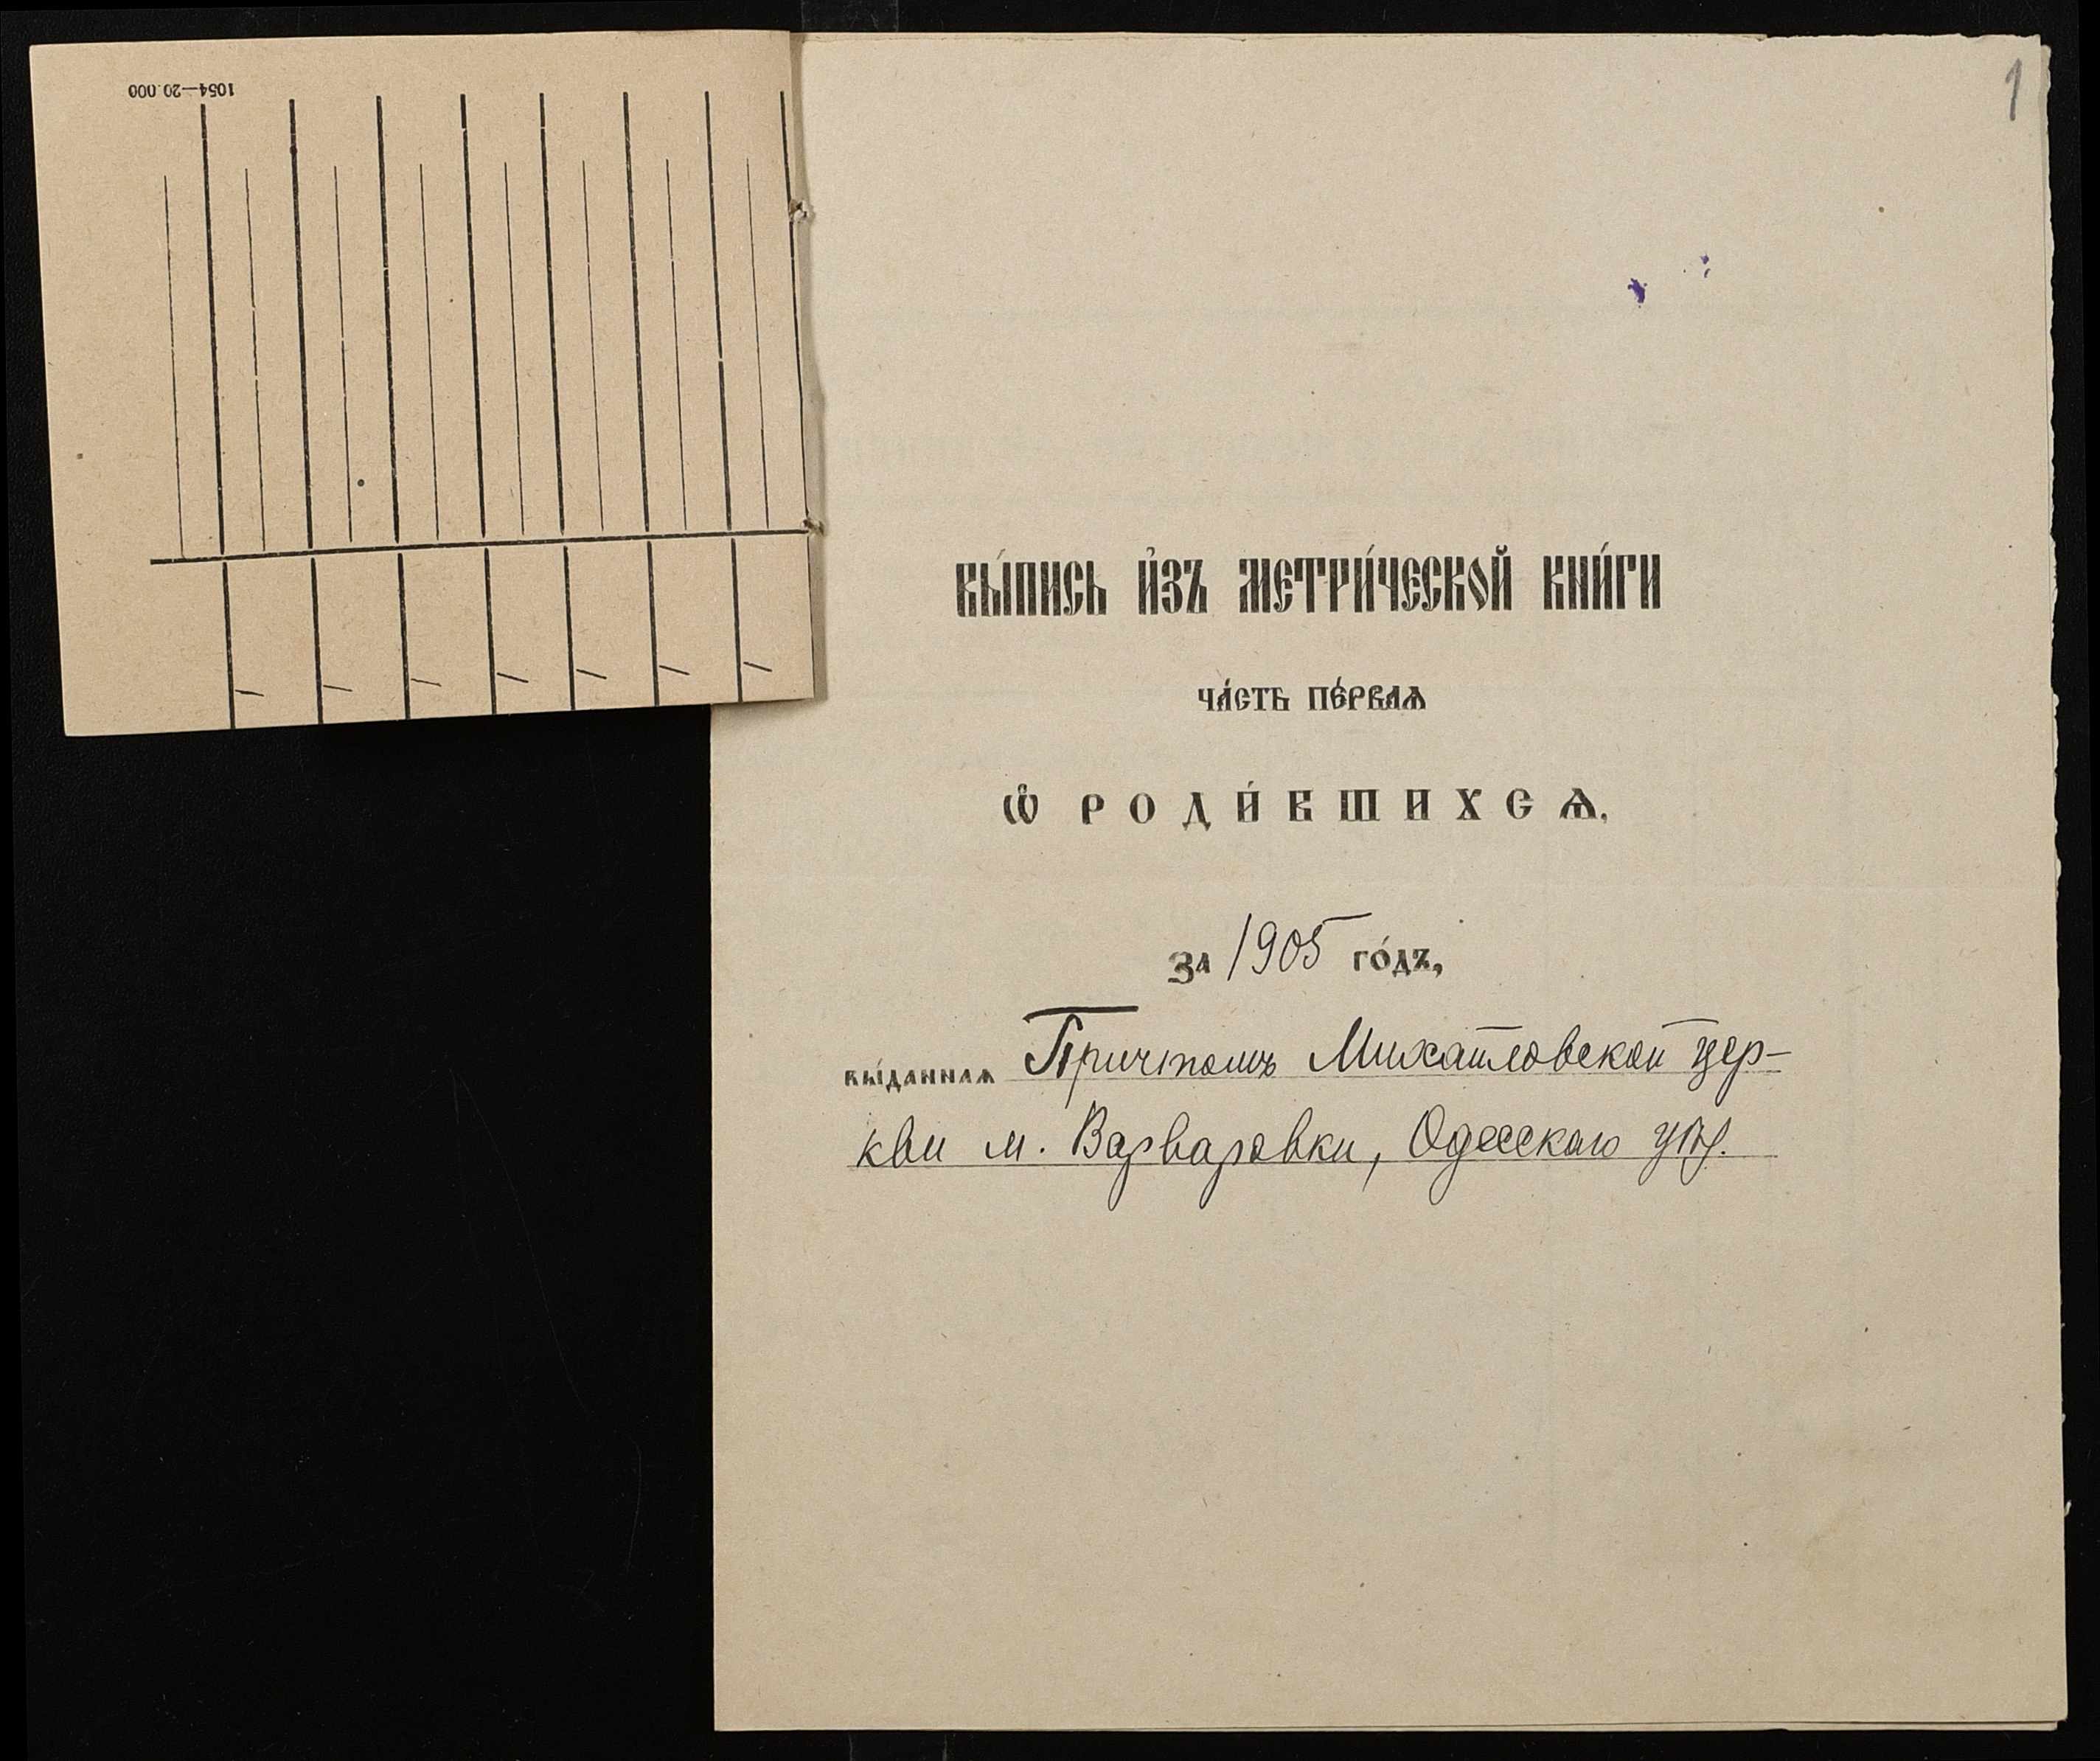 1054—20.000
1
Вы́пись и҆зъ метри́ческой кни́ги
ча́сть пе́рваѧ
Ѡ҆ роди́вшихсѧ,
за 1905 го́дъ,
вы́даннаѧ Причтомъ Михайловской цер-
кви м. Варваровки, Одесскаго у.